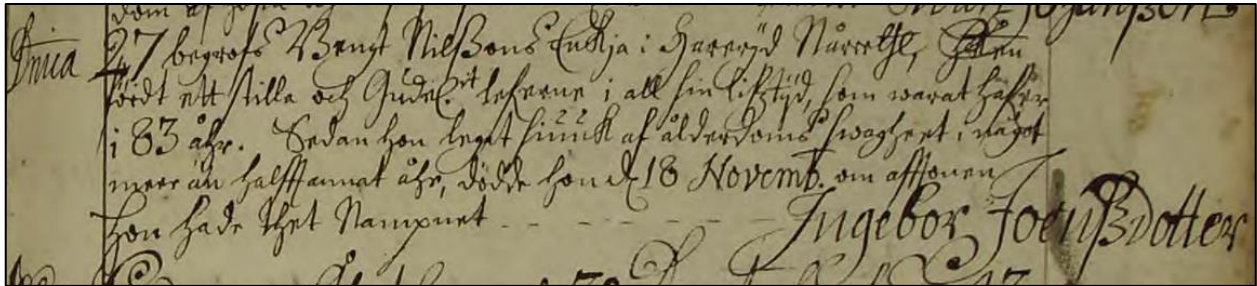 27 begrofs Bengt Nilßons Enkja i Hareryd
fördt ett stilla och Gudel.it leferne i all sin lifztyd, som warat hafwer
i 83 åhr. Sedan hon legat siuuk af ålderdoms swagheet i något
meer än halfftannat åhr, dödde hon d 18 Novemb. om afftonen
Hon hade thet Nampnet - - - - - Ingebor Joenßdotter